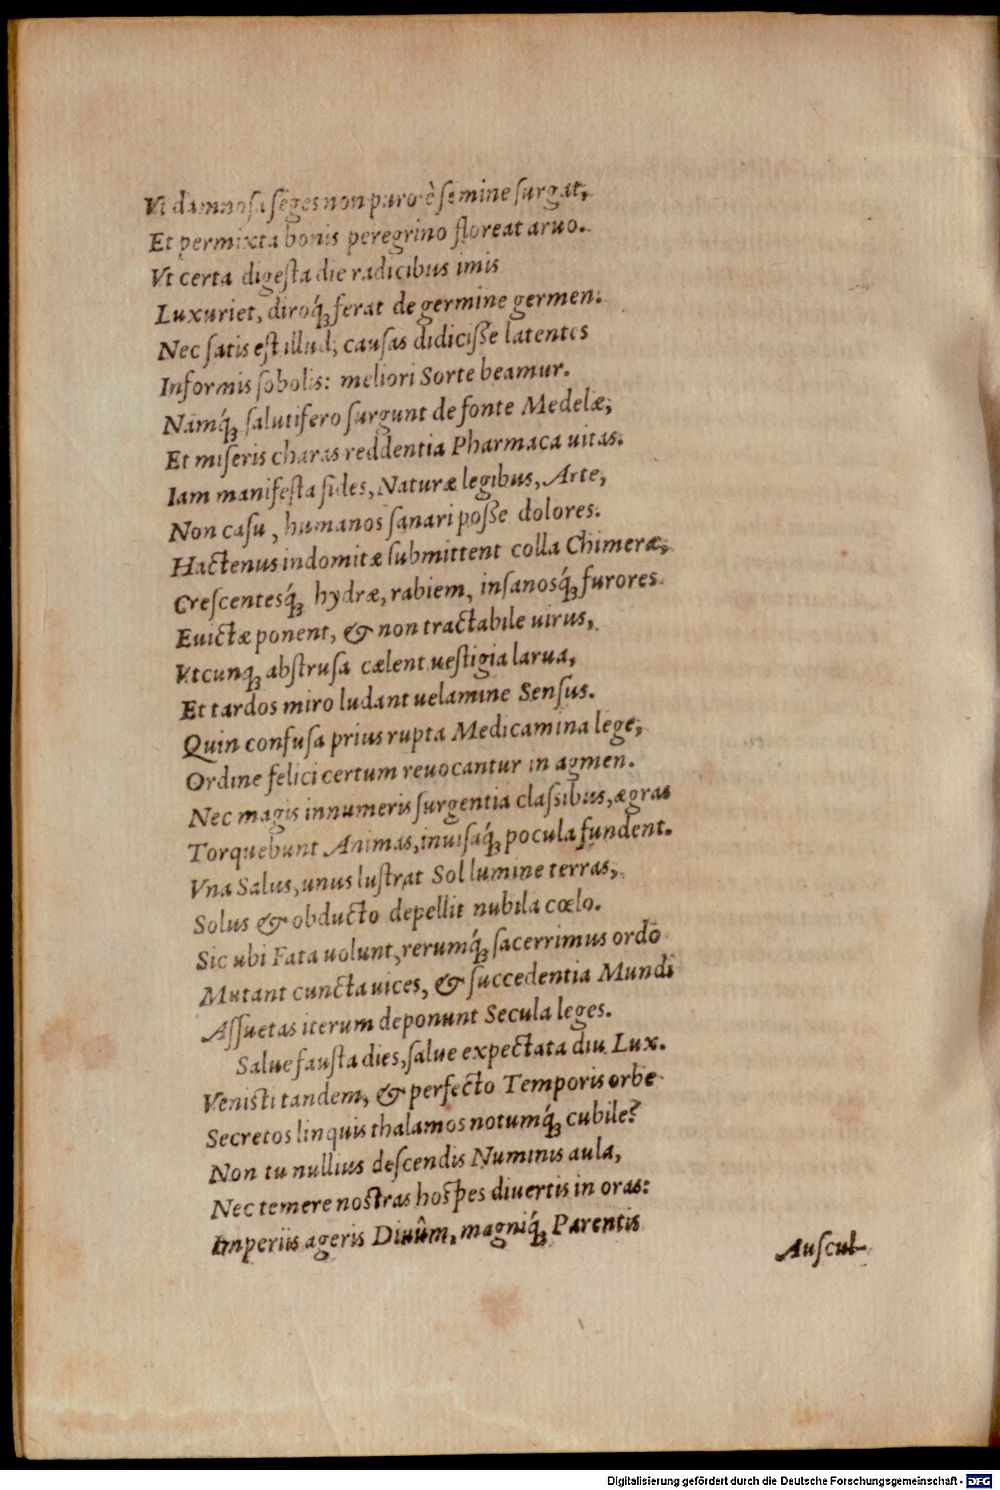 Vt damnosa seges non puro è semine surgat,
Et permixta bonis peregrino floreat aruo.
Vt certa digesta die radicibus imis
Luxuriet, diroq́ꝫ ferat de germine germen.
Nec satis est illud, causas didicisse latentes
Informis sobolis: meliori Sorte beamur.
Namq́ꝫ salutifero surgunt de fonte Medelæ,
Et miseris charas reddentia Pharmaca uitas.
Iam manifesta fides, Naturæ legibus, Arte,
Non casu, humanos sanari posse dolores.
Hactenus indomitæ submittent colla Chimeræ,
Crescentesq́ꝫ hydræ, rabiem, insanosq́ꝫ furores
Euictæ ponent, & non tractabile uirus,
Vtcunqꝫ abstrusa cælent uestigia larua,
Et tardos miro ludant uelamine Sensus.
Quin confusa prius rupta Medicamina lege,
Ordine felici certum reuocantur in agmen.
Nec magis innumeris surgentia classibus, ægras
Torquebunt Animas, inuisaq́ꝫ pocula fundent.
Vna Salus, unus lustrat Sol lumine terras,
Solus & obducto depellit nubila cœlo.
Sic ubi Fata uolunt, rerumq́ꝫ sacerrimus ordo
Mutant cuncta uices, & succedentia Mundi
Assuetas iterum deponunt Secula leges.
Salue fausta dies, salue expectata diu Lux.
Venisti tandem, & perfecto Temporis orbe
Secretos linquis thalamos notumq́ꝫ cubile?
Non tu nullius descendis Numinis aula,
Nec temere nostras hospes diuertis in oras:
Imperiis ageris Diuûm, magniq́ꝫ Parentis
Auscul-
Digitalisierung gefördert durch die Deutsche Forschungsgemeinschaft - DFG